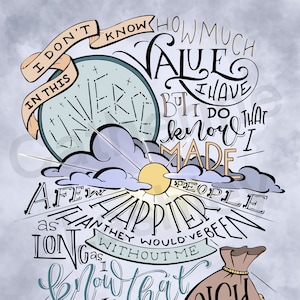 I DON'T KNOW HOW MUCH
VALUE
I HAVE
IN THIS
UNIVERSE
BUT I DO
know THAT
I
MADE
A FEW PEOPLE
HAPPIER
THAN THEY WOULD'VE BEEN
WITHOUT ME
as
LONG as
I
know that
RICH